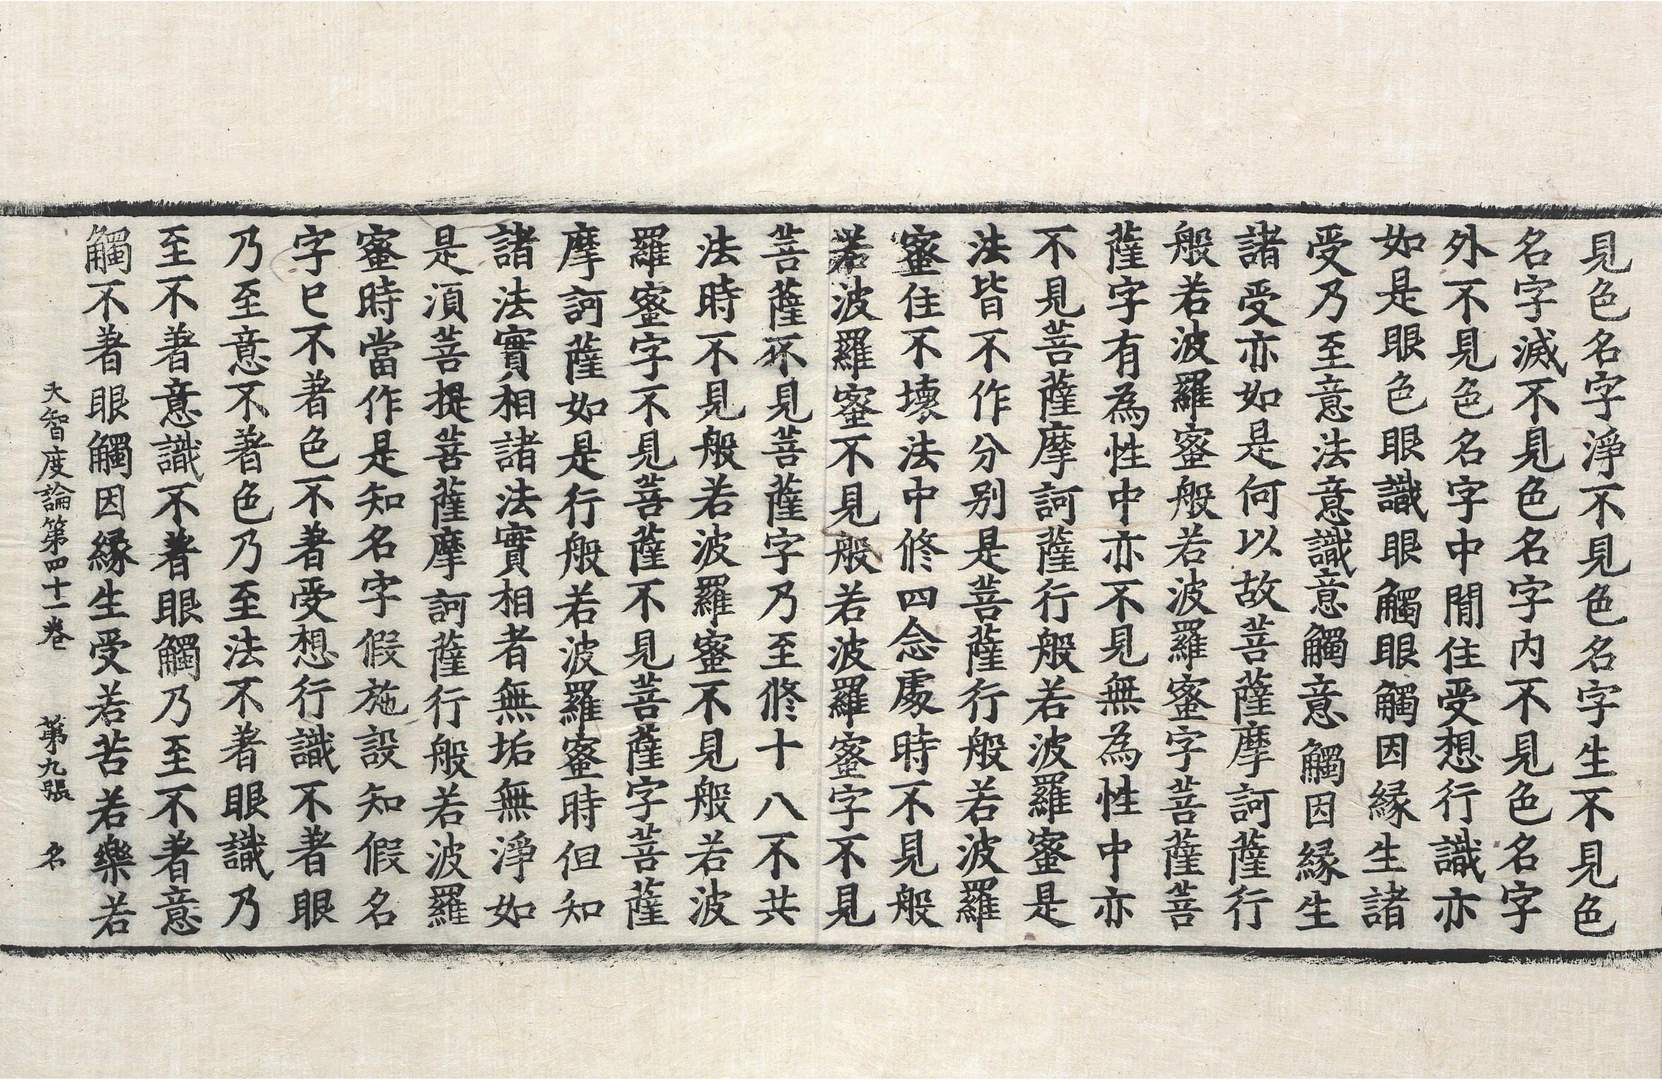 見色名字淨不見色名字生不見色
名字滅不見色名字内不見色名字
外不見色名字中閒住受想行識亦
如是眼色眼識眼觸眼觸因縁生諸
受乃至意法意識意觸意觸因縁生
諸受亦如是何以故菩薩摩訶薩行
般若波羅蜜般若波羅蜜字菩薩菩
薩字有為性中亦不見無為性中亦
不見菩薩摩訶薩行般若波羅蜜是
法皆不作分別是菩薩行般若波羅
蜜住不壞法中修四念處時不見般
若波羅蜜不見般若波羅蜜字不見
菩薩不見菩薩字乃至修十八不共
法時不見般若波羅蜜不見般若波
羅蜜字不見菩薩不見菩薩字菩薩
摩訶薩如是行般若波羅蜜時但知
諸法實相諸法實相者無垢無淨如
是湏菩提菩薩摩訶薩行般若波羅
蜜時當作是知名字假施設知假名
字巳不著色不著受想行識不著眼
乃至意不著色乃至法不著眼識乃
至不著意識不著眼觸乃至不著意
觸不著眼觸因縁生受若苦若樂若
大智度論第四十一卷 第九張 名